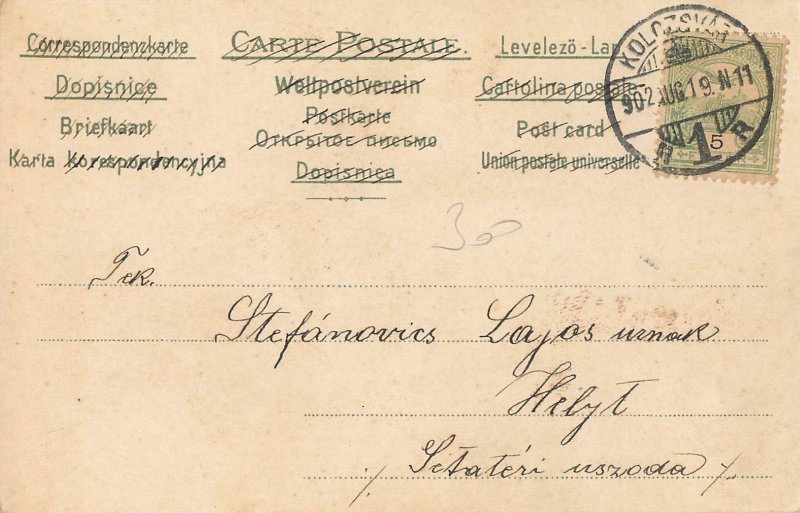 Correspondenzkarte
CARTE POSTALE.
Levelező-Lap
Dopisnice
Weltpostverein
Cartolina postale
Briefkaart
Postkarte
Post card
Karta Korespondencyjna
Открытое письмо
Union postale universelle
Dopisnica
KOLOZSVÁR
902 AUG. 19. N. 11
1
5
30
Tek.
Stefánovics Lajos urnak
Helyt
Sétatéri uszoda